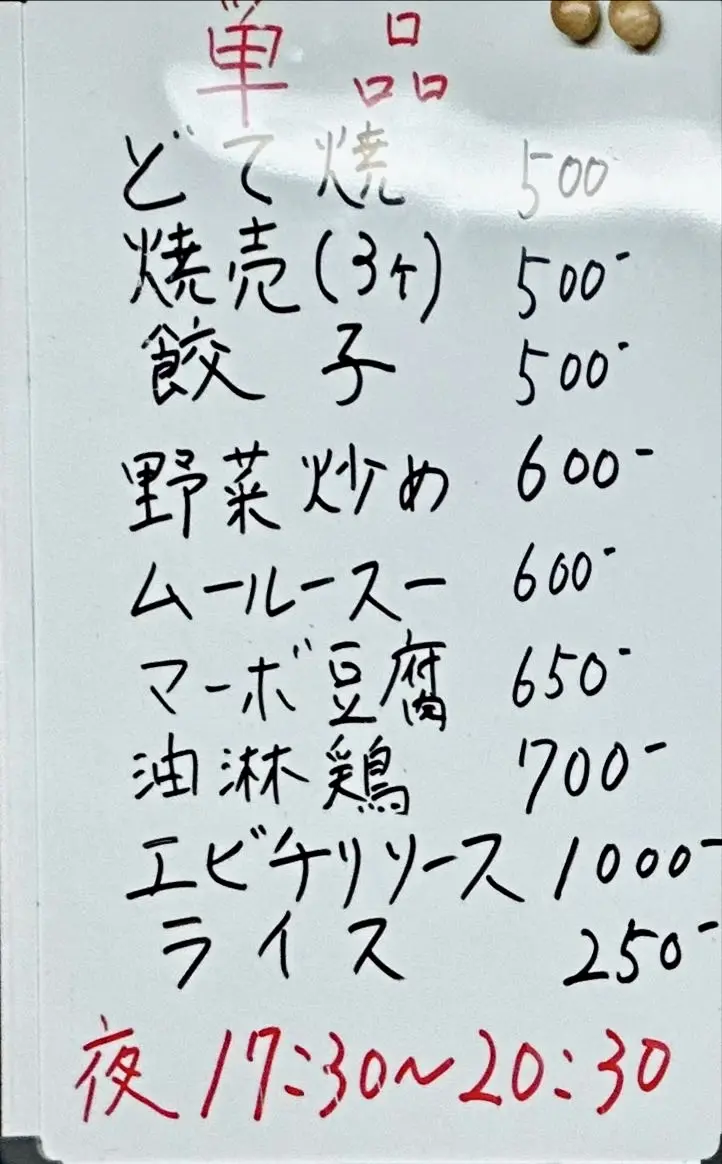 単品
どて焼 500
焼売(3ヶ) 500-
餃子 500-
野菜炒め 600-
ムールースー 600-
マーボ豆腐 650-
油淋鶏 700-
エビチリソース 1000-
ライス 250-
夜 17:30~20:30